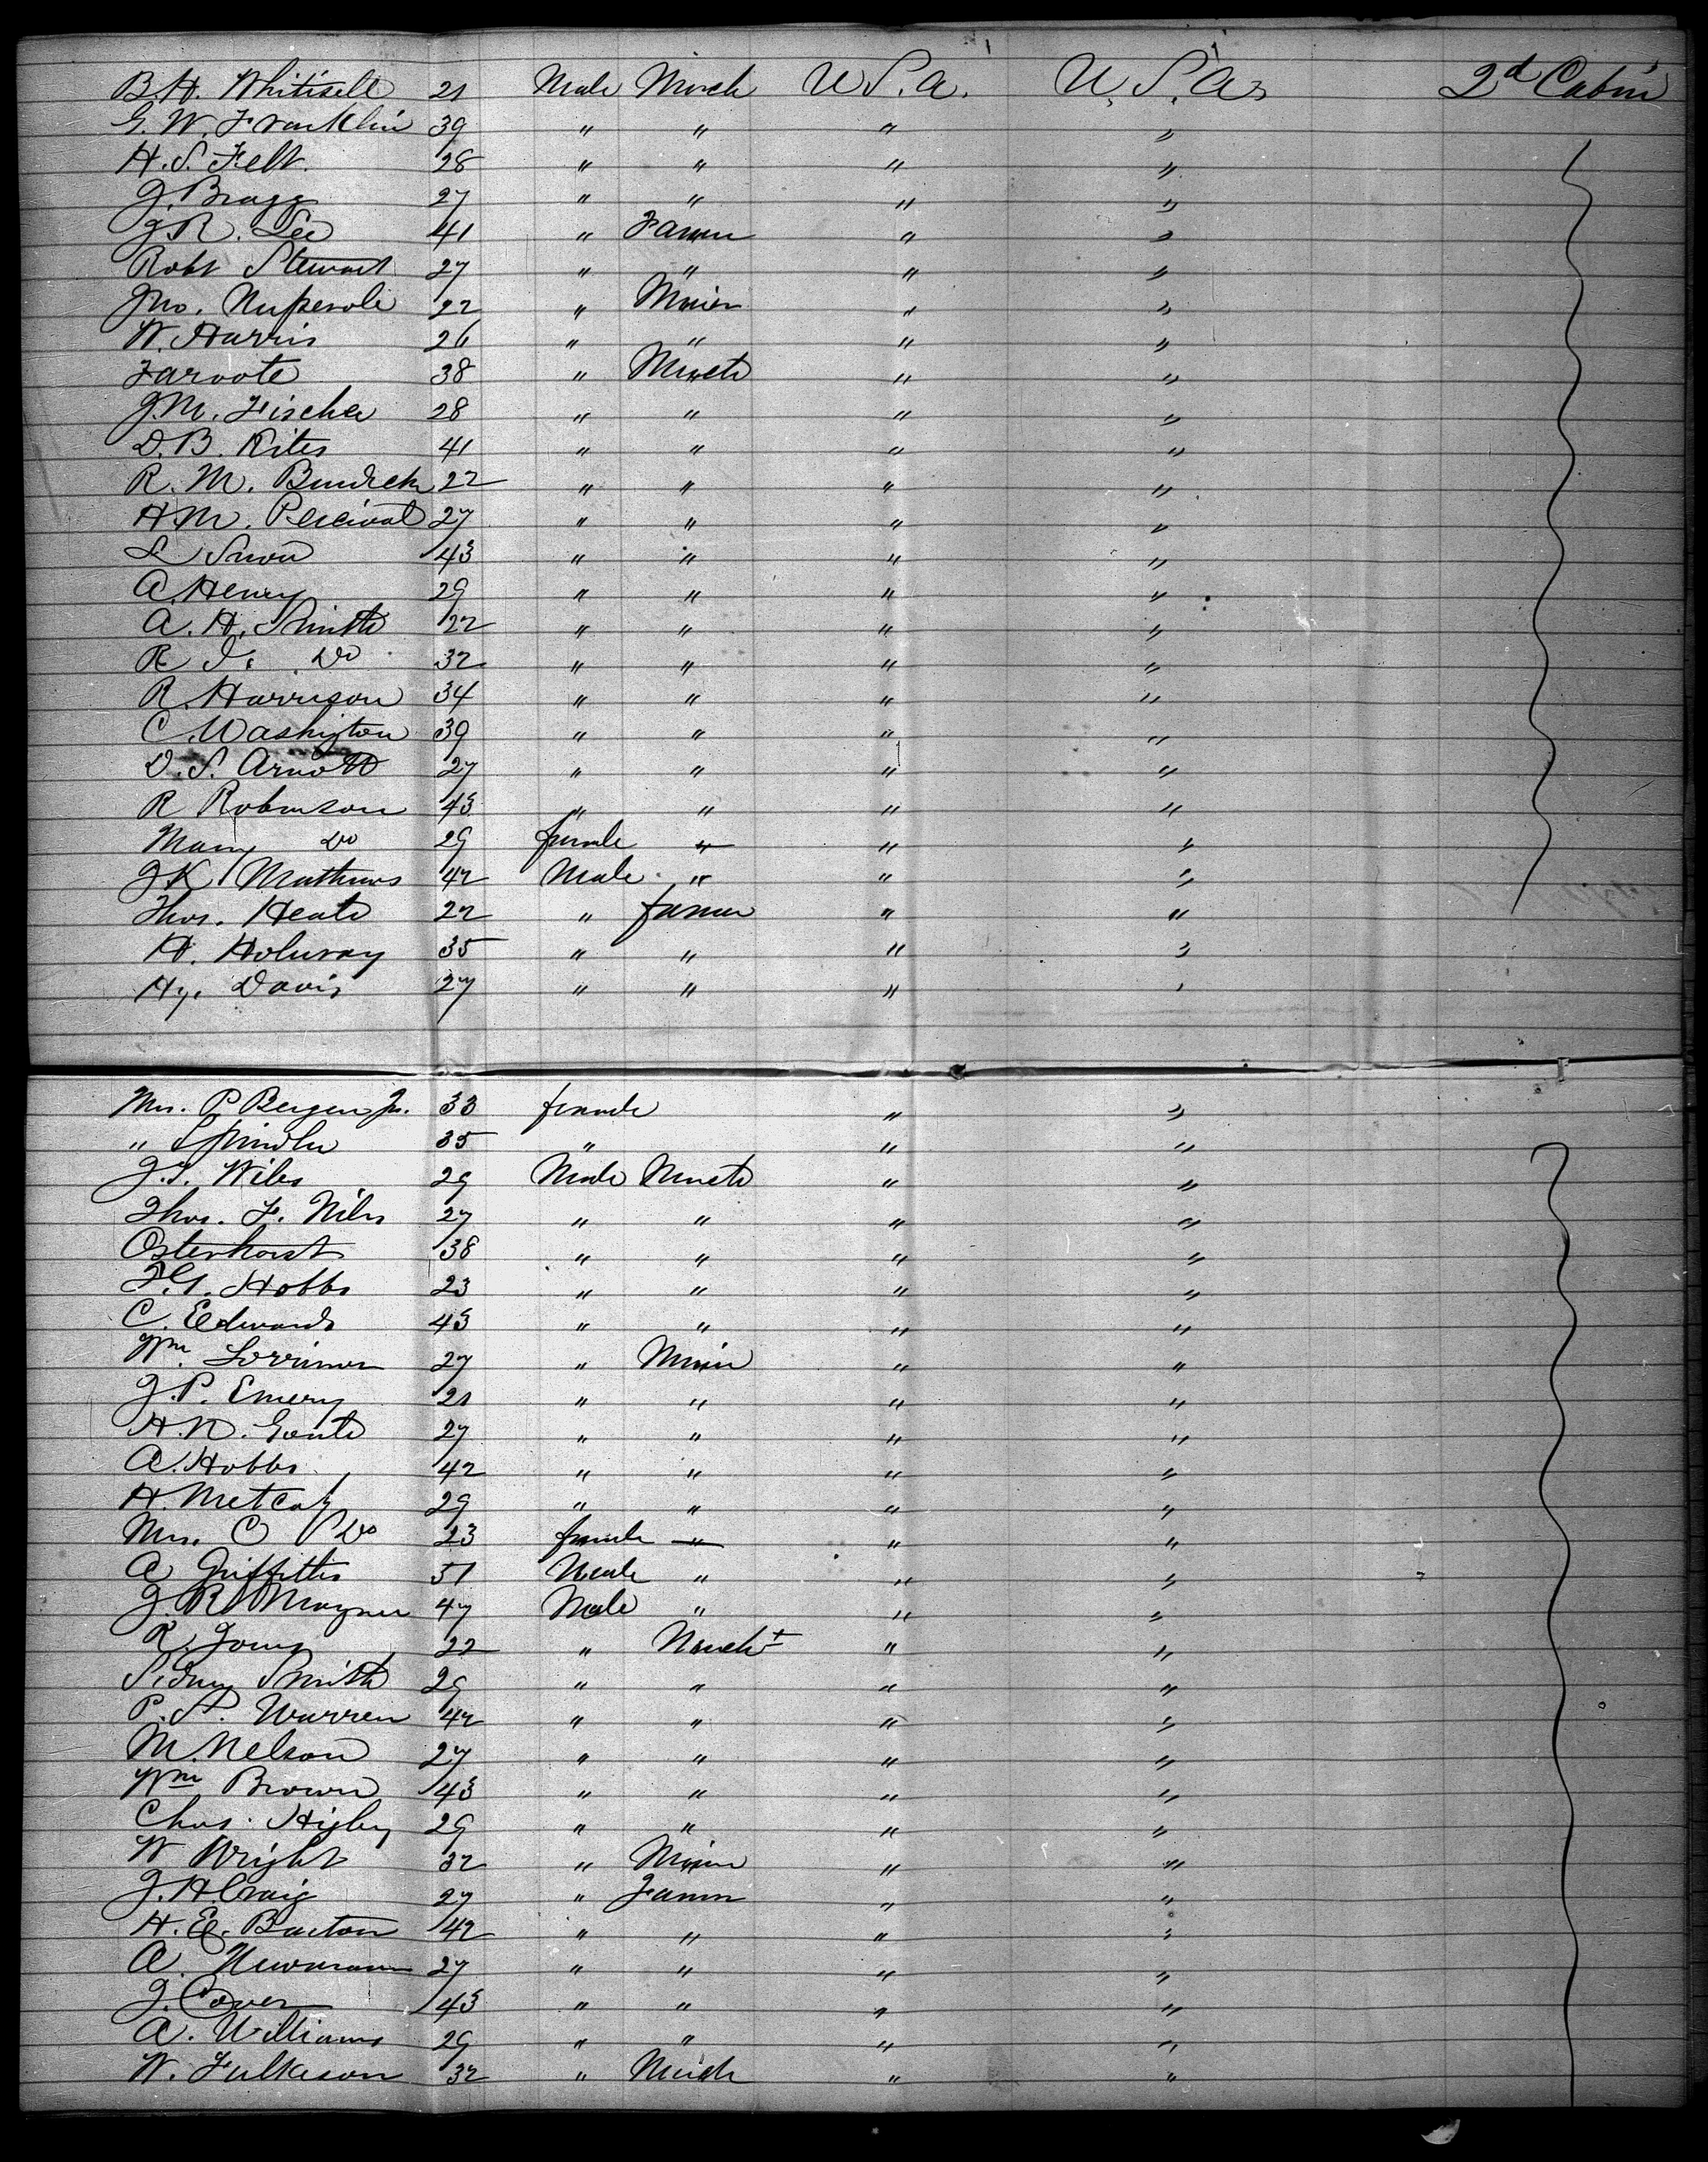 B.H. Whitisell 21 Male Merch U.S.A. U.S.A. 2d Cabin
G.W. Franklin 39 " " " "
H.S. Felt. 28 " " " "
J. Bragg 27 " " " "
J.R. Lee 41 " Farmer " "
Robt Stewart 27 " " " "
Jno. 22 " Miner " "
W. Harris 26 " " " "
Faroote 38 " Merch " "
J.M. Fischer 28 " " " "
D.B. Kites 41 " " " "
R.M. Burdick 22 " " " "
H.M. Percival 27 " " " "
L Snow 43 " " " "
A. Henry 29 " " " "
A.H. Smith 22 " " " "
R Do 32 " " " "
R. Harrison 34 " " " "
C. Washigton 39 " " " "
D.S. Arnott 27 " " " "
R Robinson 43 " " " "
Mary Do 29 female " " "
J K Mathews 42 Male " " "
Thos. Heath 22 " farmer " "
H. Holway 35 " " " "
Hy. Davis 27 " " " "
Mrs. P Bergen Jr. 33 female " "
" Spindler 35 " " "
J.T. Wiles 29 Male Merch " "
Thos. F. Niles 27 " " " "
Osterhorst 38 " " " "
F.G. Hobbs 23 " " " "
C. Edwards 43 " " " "
Wm. Lorrimer 27 " Miner " "
J.P. Emery 21 " " " "
H.N. 27 " " " "
A. Hobbs 42 " " " "
H. Metcalf 29 " " " "
Mrs. C Do 23 female " " "
A Griffiths 31 Male " " "
J.R. Mayner 47 Male " " "
R. Jones 22 " Mercht " "
Sidney Smith 29 " " " "
P.S. Warren 42 " " " "
M. Nelson 27 " " " "
Wm Brown 43 " " " "
Chas. Higby 29 " " " "
W Wright 32 " Miner " "
J.H. Craig 27 " Farmer " "
H.E. Barton 42 " " " "
A. Newmann 27 " " " "
J. Cover 43 " " " "
A. Williams 29 " " " "
W. Fulkerson 32 " Merch " "